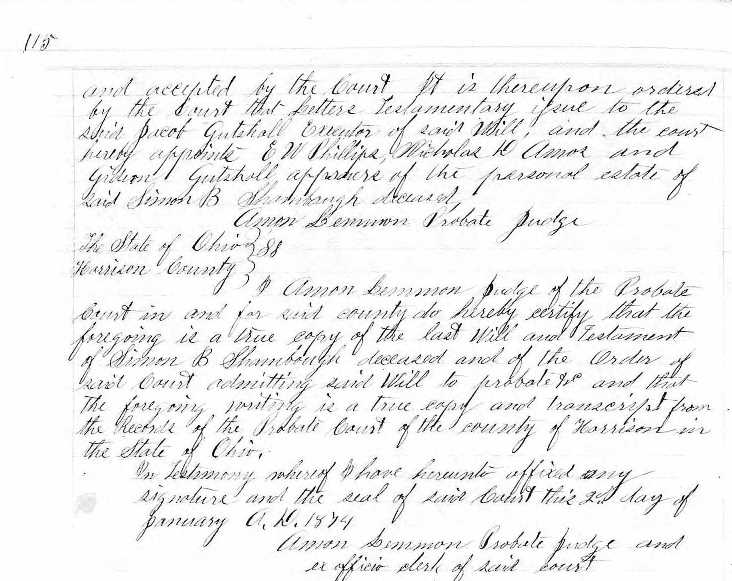 115
and accepted by the Court It is thereupon ordered
by the Court that Letters Testamentary issue to the
said Jacob Gutshall Executor of said Will, and the court
hereby appoints E W Phillips, Nicholas D Amos and
Gideon Gutshall apprasers of the personal estate of
said Simon B Shambaugh deceased,
Amon Lemmon Probate Judge
The State of Ohio } SS
Harrison County }
I Amon Lemmon Judge of the Probate
Court in and for said county do hereby certify that the
foregoing is a true copy of the last Will and Testament
of Simon B Shambough deceased and of the Order of
said Court admitting said Will to probate &c and that
the foregoing writing is a true copy and transcript from
the Records of the Probate Court of the county of Harrison in
the State of Ohio.
In testimony whereof I have hereunto affixed my
signature and the seal of said Court this 2d day of
January A. D. 1874
Amon Lemmon Probate Judge and
ex officio clerk of said court